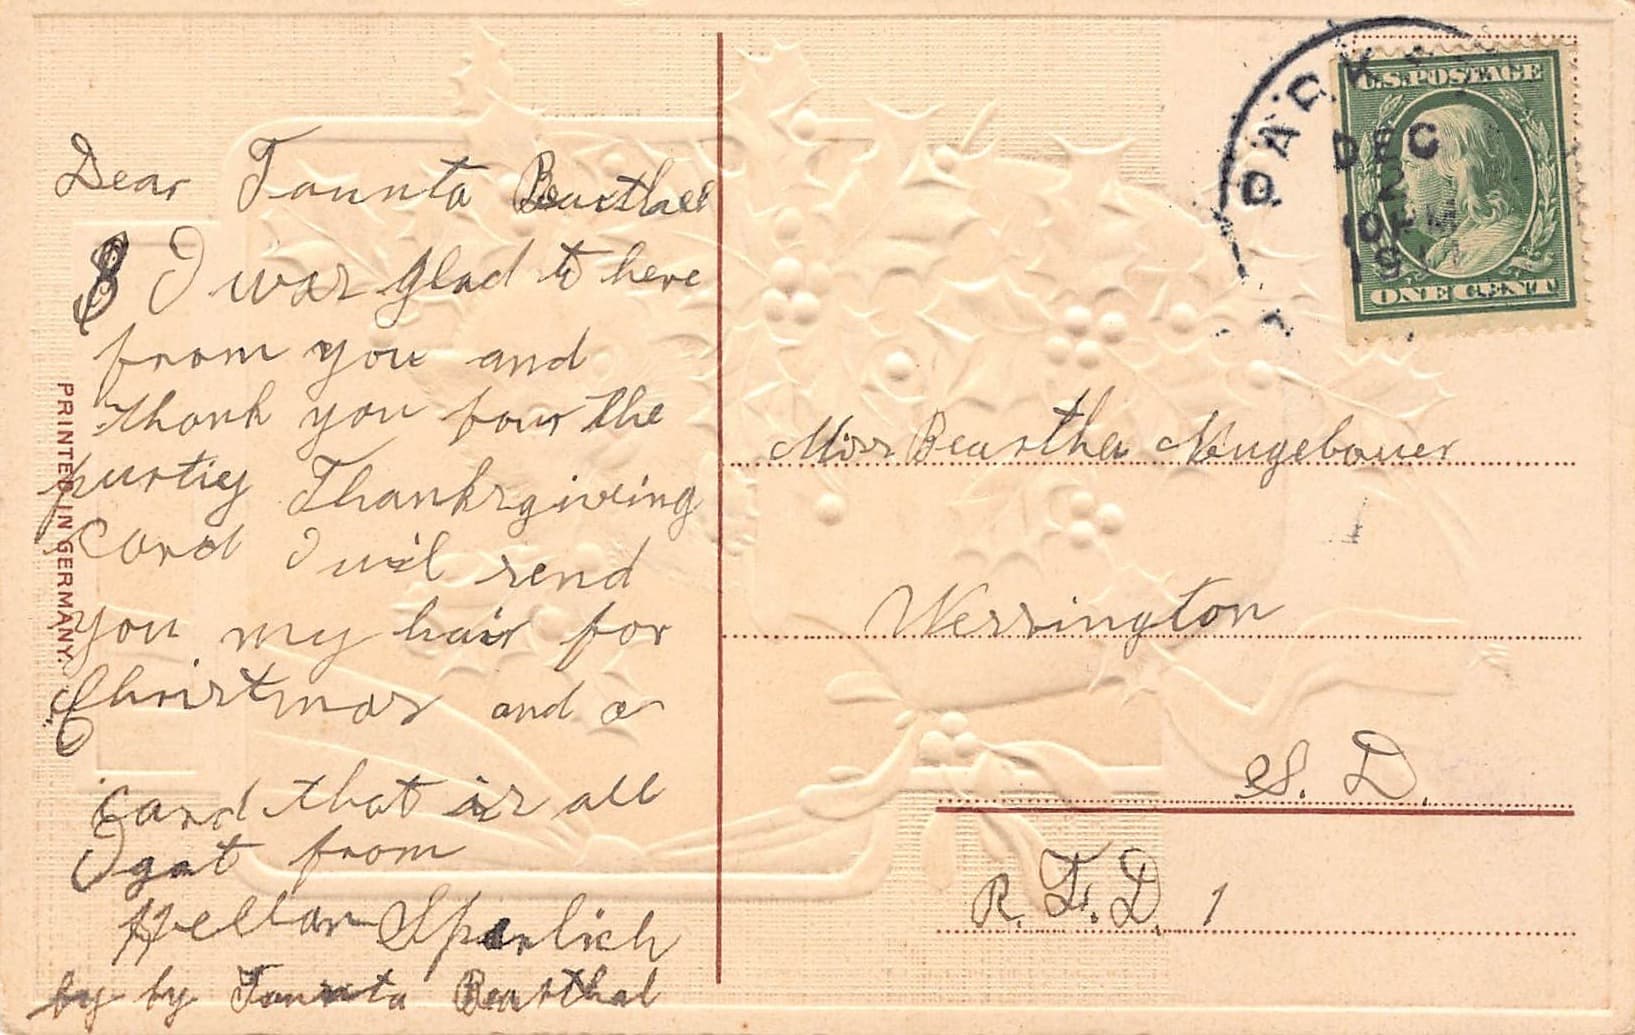 Dear Taunta Bearthal
I was glad to here
from you and
thank you four the
purtiy Thanksgiving
Card I wil send
you my hair for
Christmas and a
card that is all
I gat from
Hellan Sperlich
by by Taunta Bearthal
PRINTED IN GERMANY.
PARK
DEC
2
10
19
U.S. POSTAGE
ONE CENT
Miss Beartha Neugebauer
Wessington
S. D.
R. F. D. 1